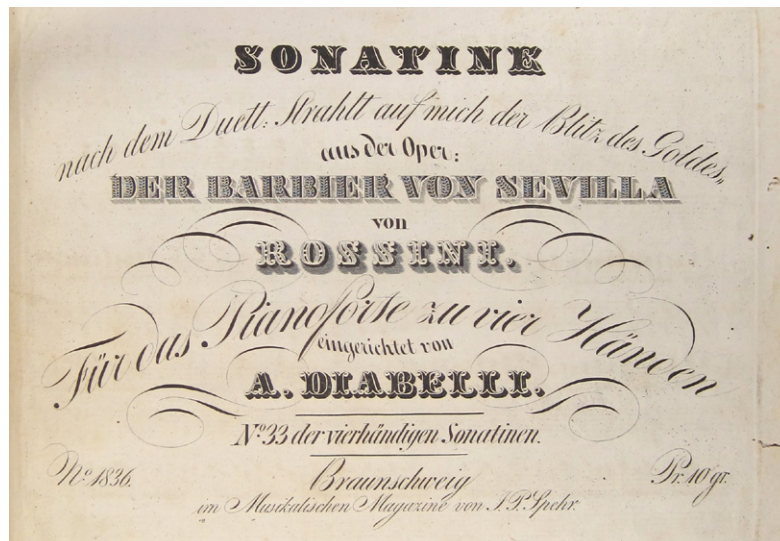 SONATINE
nach dem Duett: Strahlt auf mich der Blitz des Goldes„
aus der Oper:
DER BARBIER VON SEVILLA
von
ROSSINI.
Für das Pianoforte zu vier Händen
eingerichtet von
A. DIABELLI.
No. 33 der vierhändigen Sonatinen.
No. 1836.
Braunschweig
Pr. 10 gr.
im Musikalischen Magazine von J. P. Spehr.